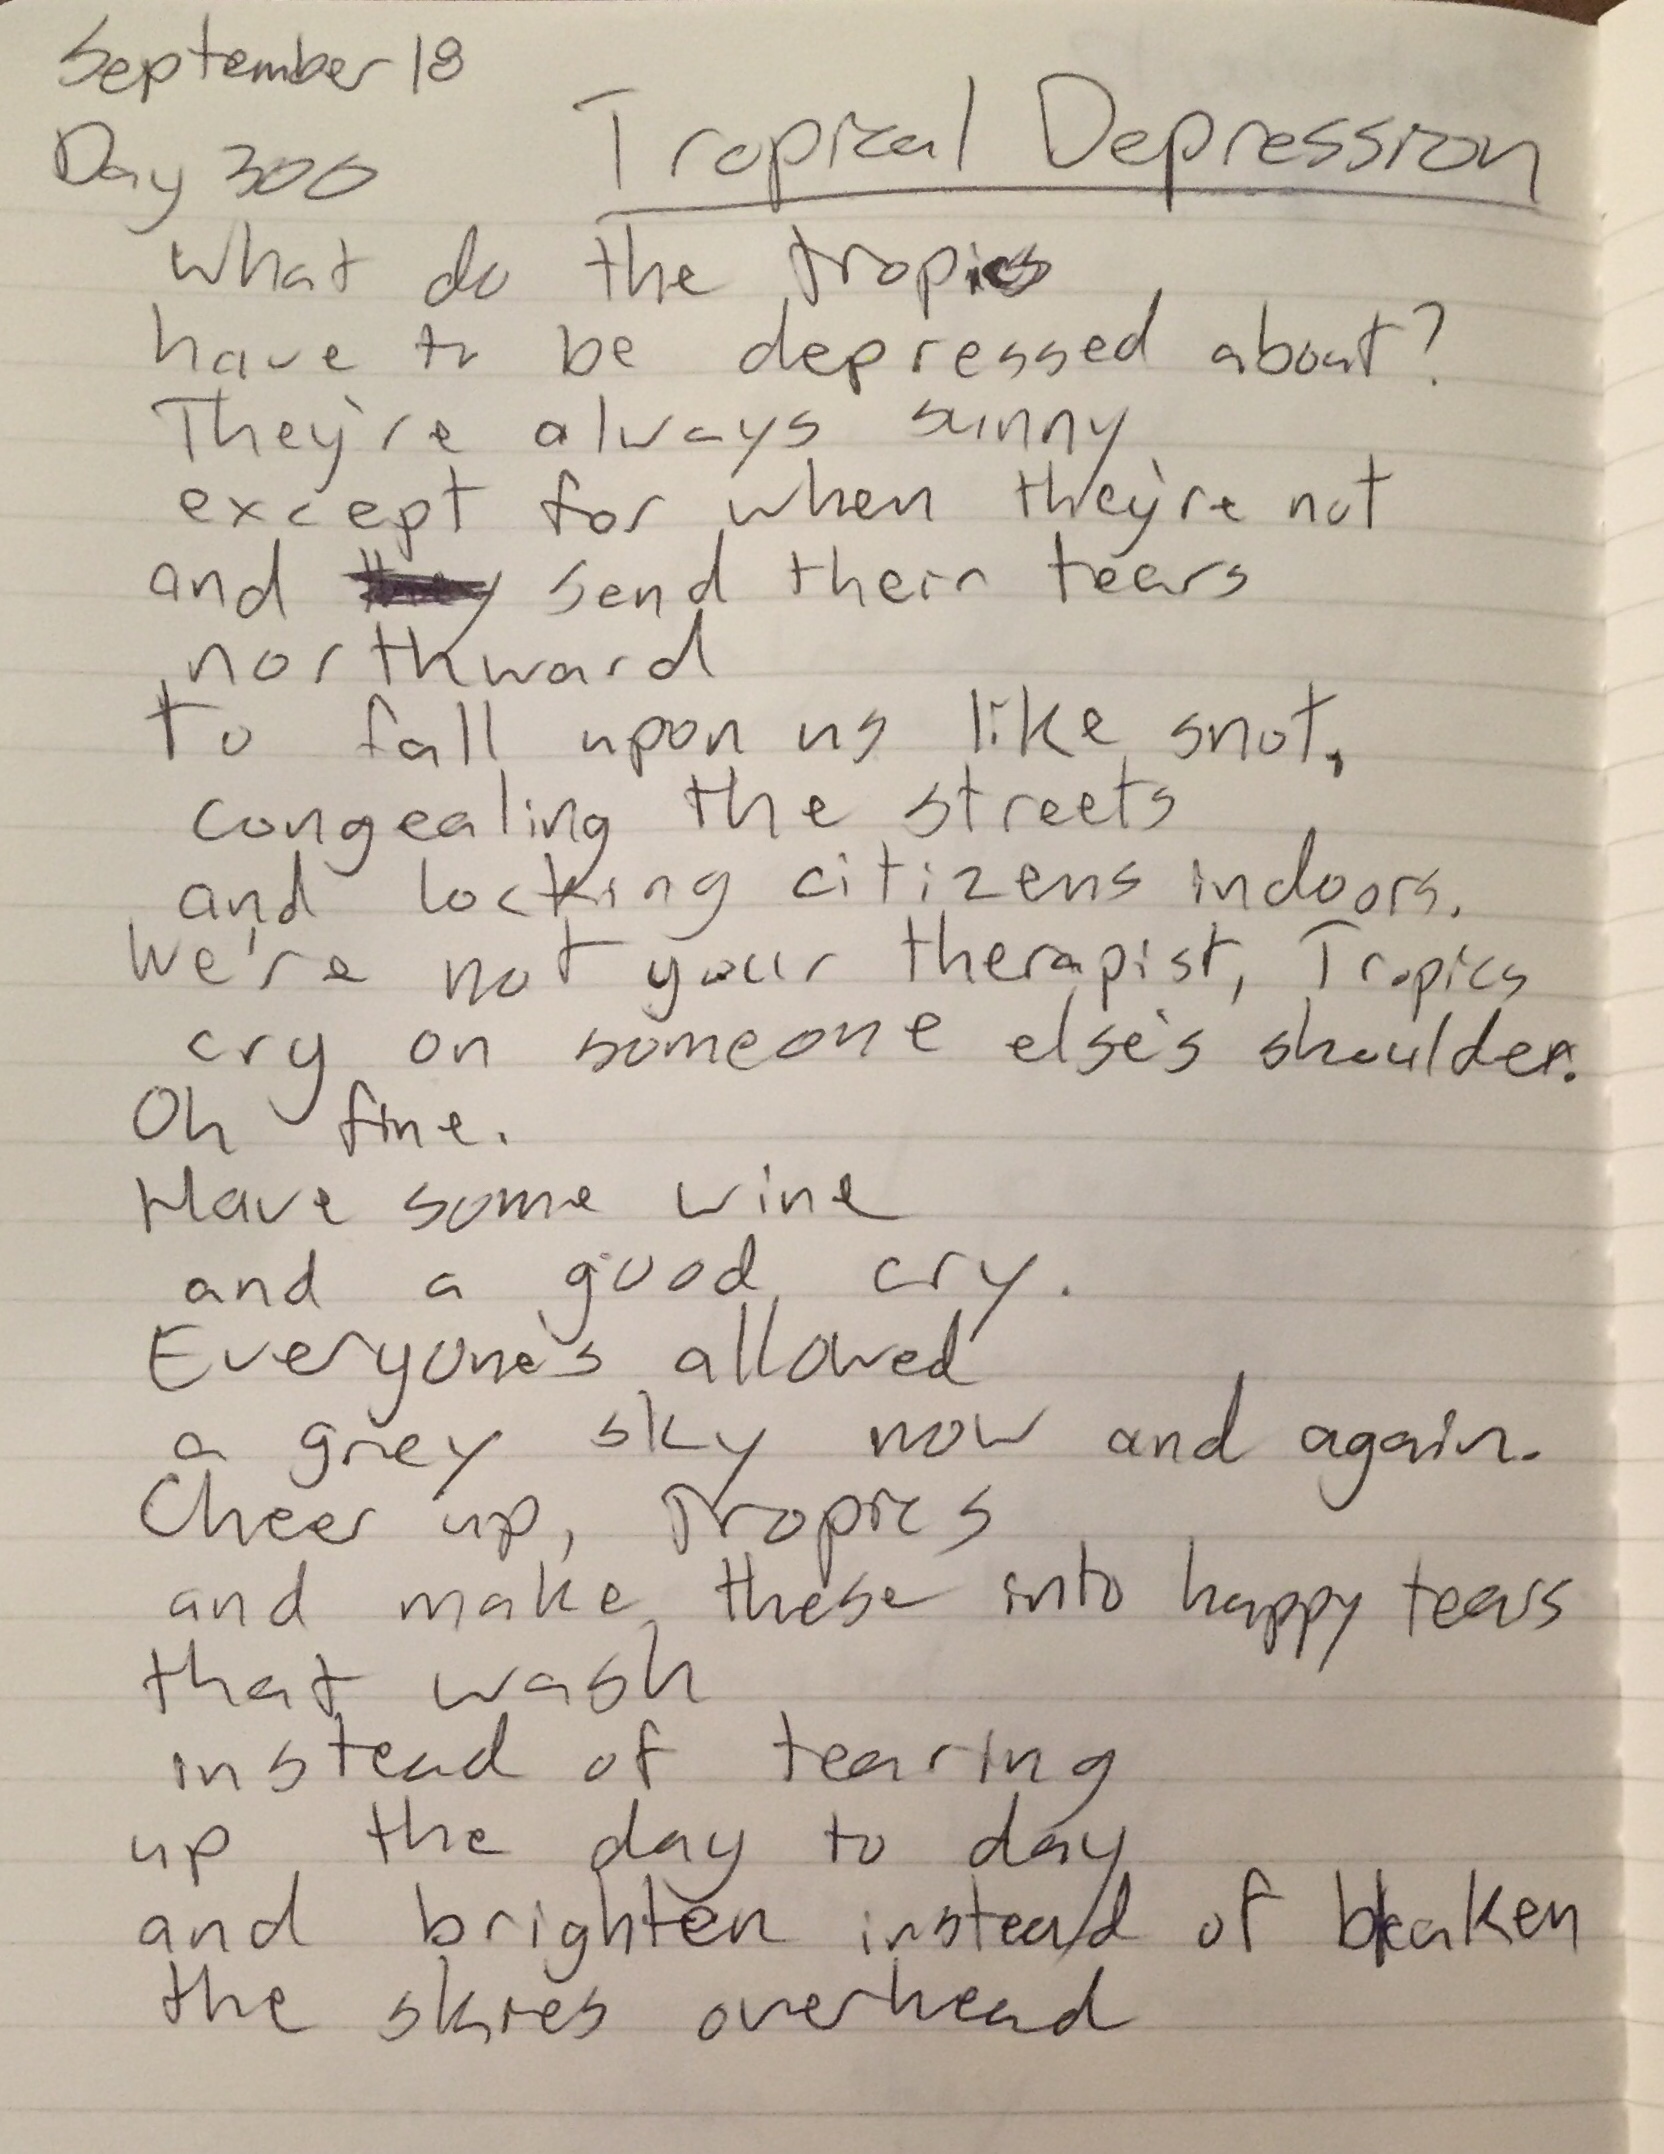 September 18
Day 300
Tropical Depression
What do the tropics
have to be depressed about?
They're always sunny
except for when they're not
and send their tears
northward
to fall upon us like snot,
congealing the streets
and locking citizens indoors.
We're not your therapist, Tropics
cry on someone else's shoulder.
Oh fine.
Have some wine
and a good cry.
Everyone's allowed
a grey sky now and again.
Cheer up, Tropics
and make these into happy tears
that wash
instead of tearing
up the day to day
and brighten instead of
the skies overhead